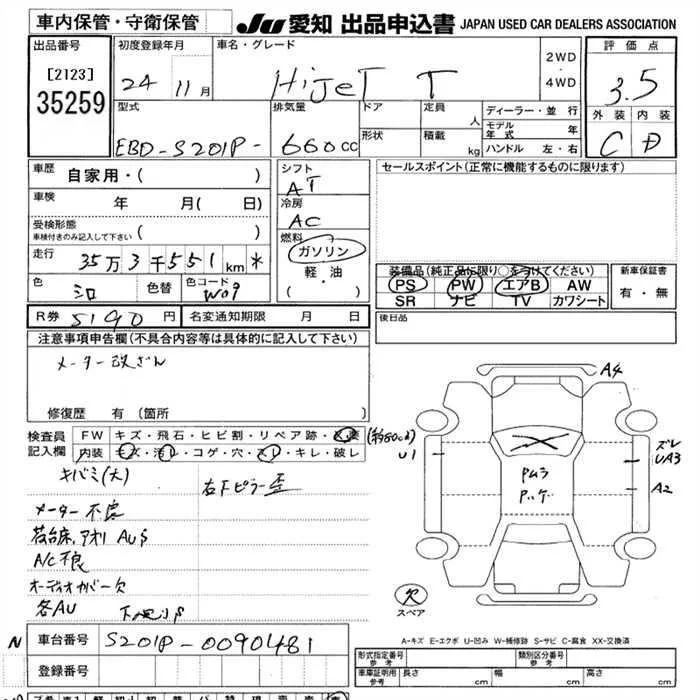 車内保管・守衛保管
JU 愛知 出品申込書 JAPAN USED CAR DEALERS ASSOCIATION
出品番号 [2123] 35259
初度登録年月 24 11月
車名・グレード HijeT T
2WD ・ 4WD
評価点 3.5
外装 C 内装 D
型式 EBD-S201P-
排気量 660cc
ドア 形状
定員 人
積載 kg
ディーラー・並行
モデル年式 年
ハンドル 左・右
車歴 自家用・( )
車検 年 月( 日)
受検形態 車検付きのみ記入して下さい ( )
走行 35万3千551km *
色 シロ 色替 色コード W09
シフト AT
冷房 AC
燃料 ガソリン 軽・油 ・( )
セールスポイント(正常に機能するものに限ります)
装備品(純正品に限り○をつけてください)
PS PW エアB AW
SR ナビ TV カワシート
新車保証書 有・無
R券 5190円 名変通知期限 月 日
後日品
注意事項申告欄(不具合内容等は具体的に記入して下さい)
メーター改ざん
修復歴 有(箇所 )
検査員記入欄
FW キズ・飛石・ヒビ割・リペア跡・
内装 キズ・汚れ・コゲ・穴・スレ・キレ・破レ
キバミ(大) 右下ピラー歪
メーター不良
荷台床,アオリ AUS
A/C不良
オーディオカバー欠
各AU
A4
U1
ズレ
UA3
A2
Pムラ
Pッケ
欠
スペア
A-キズ E-エクボ U-凹み W-補修跡 S-サビ C-腐食 XX-交換済
N
車台番号 S201P-0090481
登録番号
形式指定番号 参考 類別区分番号 参考
車庫証明用 参考 長さ cm 幅 cm 高さ cm